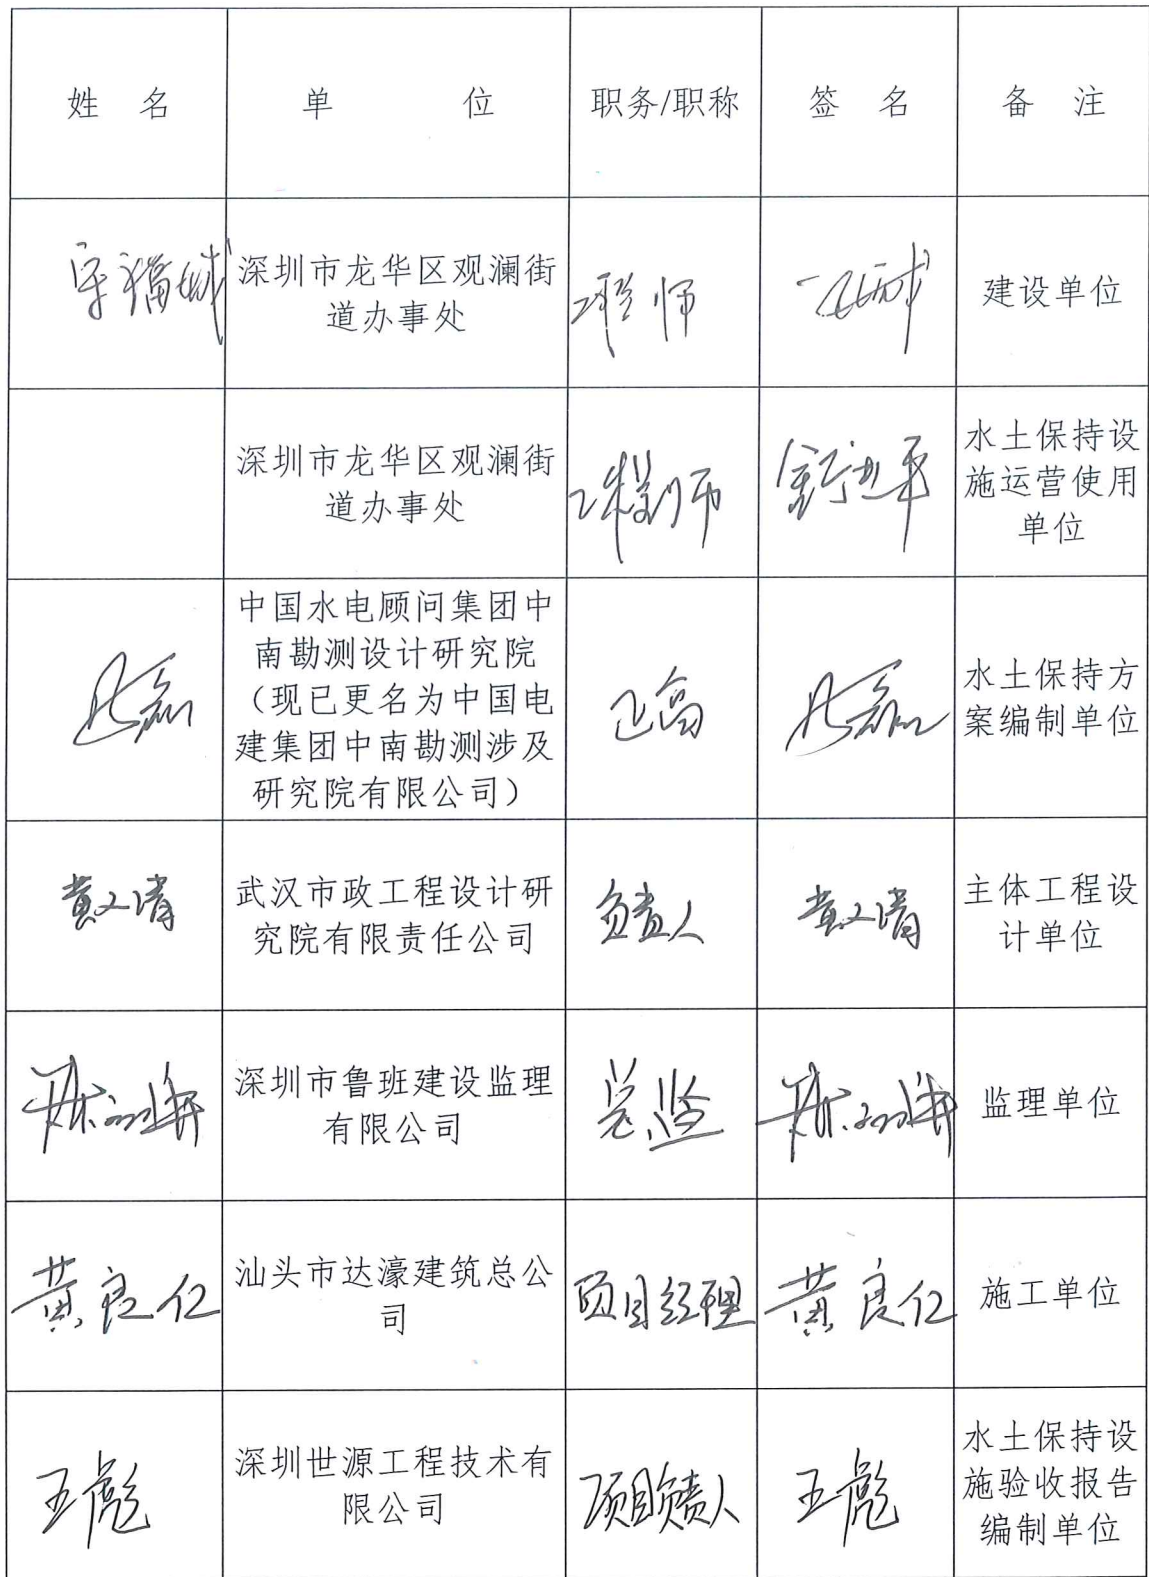 姓 名 单 位 职务/职称 签 名 备 注
深圳市龙华区观澜街
道办事处
工程师
建设单位
深圳市龙华区观澜街
道办事处
工程师
水土保持设
施运营使用
单位
中国水电顾问集团中
南勘测设计研究院
（现已更名为中国电
建集团中南勘测涉及
研究院有限公司）
正高
水土保持方
案编制单位
武汉市政工程设计研
究院有限责任公司
负责人
主体工程设
计单位
深圳市鲁班建设监理
有限公司
总监
监理单位
黄良仁
汕头市达濠建筑总公
司
项目经理
黄良仁
施工单位
王彪
深圳世源工程技术有
限公司
项目负责人
王彪
水土保持设
施验收报告
编制单位